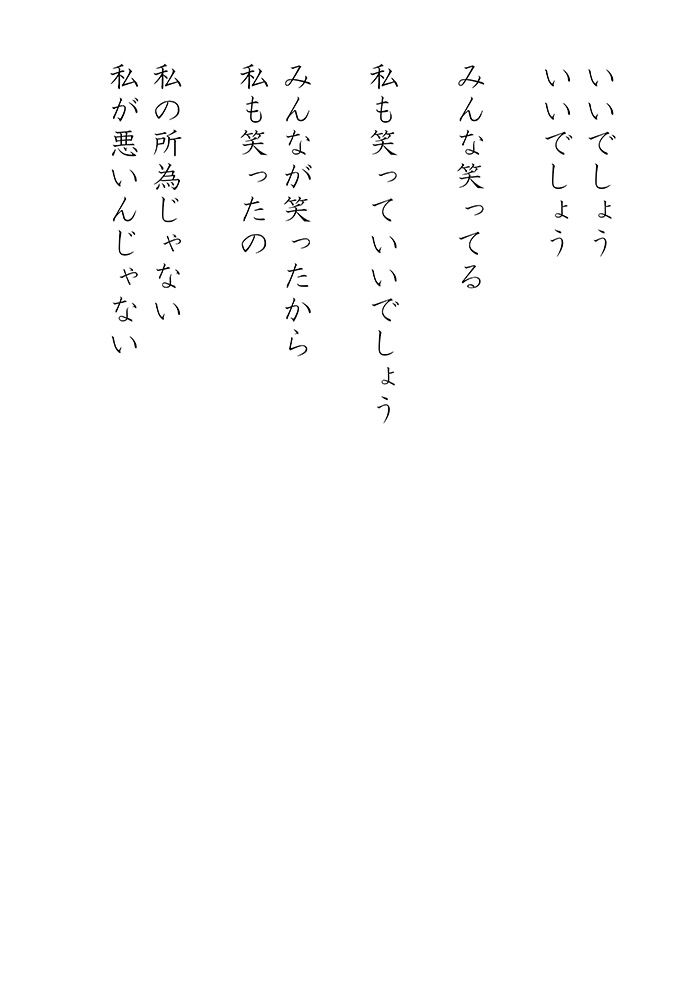 いいでしょう
いいでしょう
みんな笑ってる
私も笑っていいでしょう
みんなが笑ったから
私も笑ったの
私の所為じゃない
私が悪いんじゃない